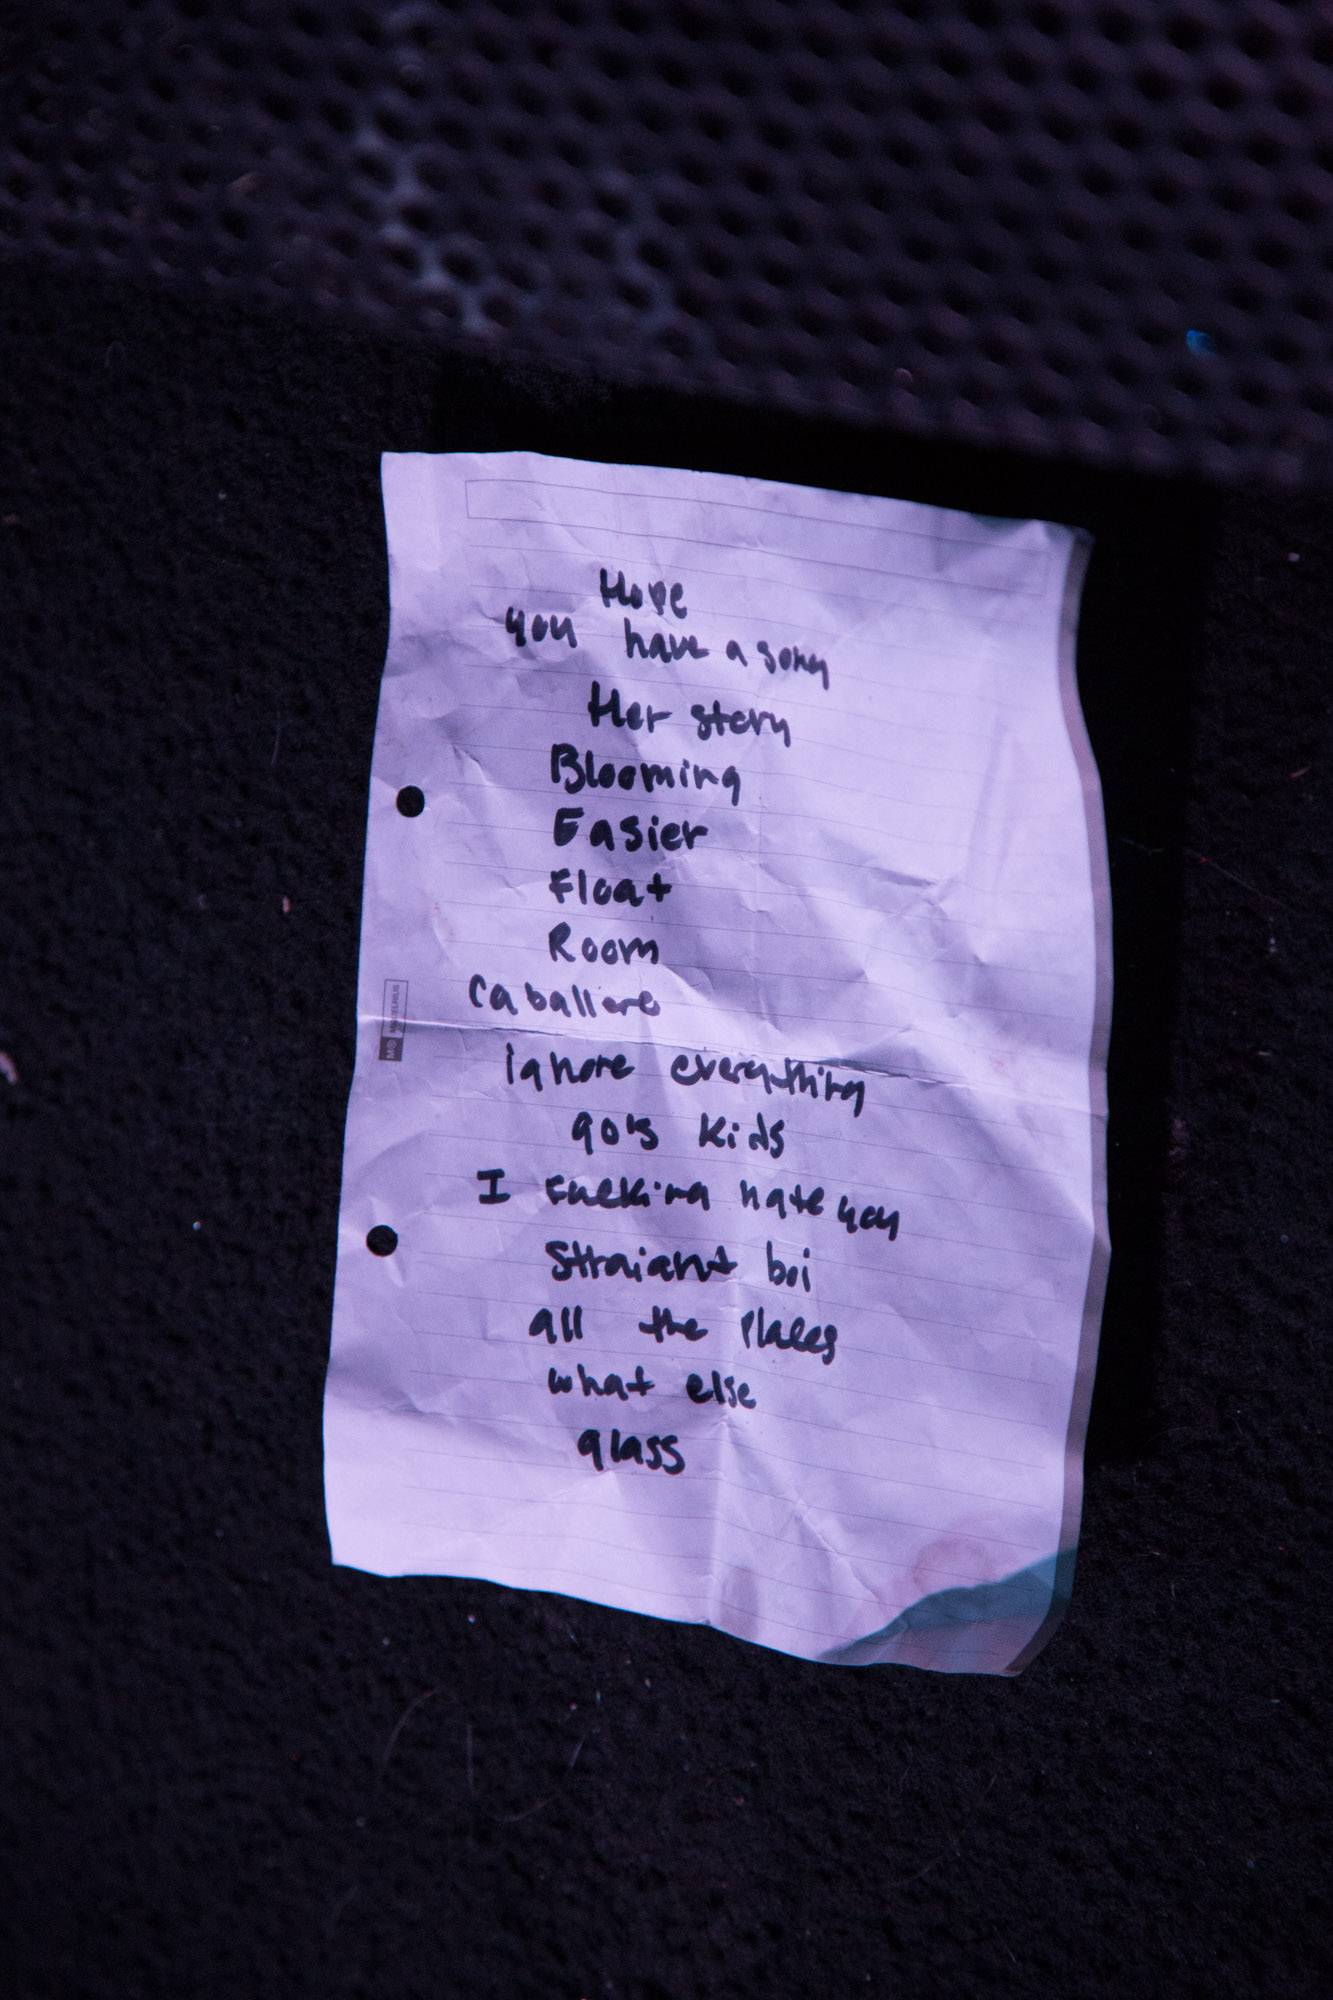 Hope
you have a song
Her story
Blooming
Easier
Float
Room
Caballero
ignore everything
90's kids
I fucking hate you
Straight boi
all the places
what else
glass